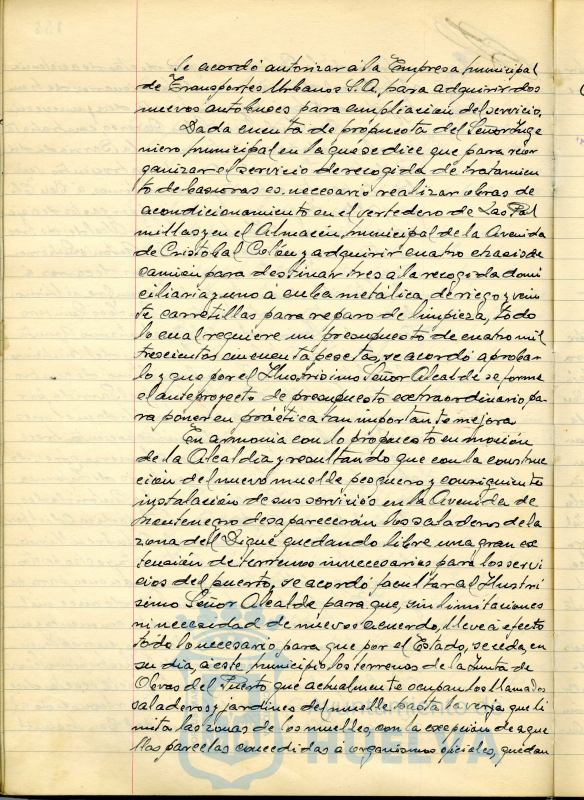 Se acordó autorizar á la Empresa municipal
de Transportes Urbanos S.A. para adquirir dos
nuevos autobuses para ampliacion del servicio.
Dada cuenta de propuesta del Señor Inge
niero municipal en la que se dice que para reor
ganizar el servicio de recogida de tratamien
to de basuras es necesario realizar obras de
acondicionamiento en el vertedero de Las Pal
millas y en el Almacén municipal de la Avenida
de Cristobal Colón y adquirir cuatro chasis de
camión para destinar tres á la recogida domi
ciliaria y uno á cuba metálica de riego y vein
te carretillas para reparo de limpieza, todo
lo cual requiere un presupuesto de cuatro mil
trescientas cincuenta pesetas, se acordó aprobar
lo y que por el Ilustrisimo Señor Alcalde se forme
el anteproyecto de presupuesto extraordinario pa
ra poner en práctica tan importante mejora
En armonia con lo propuesto en moción
de la Alcaldia y resultando que con la construc
ción del nuevo muelle pesquero y consiguiente
instalación de sus servicios en la Avenida de
Montenegro desaparecerán los saladeros de la
zona del Dique quedando libre una gran ex
tensión de terrenos innecesarios para los servi
cios del puerto, se acordó facultar al Ilustri
simo Señor Alcalde para que, sin limitaciones
ni necesidad de nuevos acuerdo, lleve á efecto
todo lo necesario para que por el Estado, se ceda, en
su dia, a este municipio los terrenos de la Junta de
Obras del Puerto que actualmente ocupan los llamados
saladeros y jardines del muelle hasta la verja que li
mita las zonas de los muelles, con la excepción de aque
llas parcelas concedidas á organismos oficiales, quedan
HUELVA